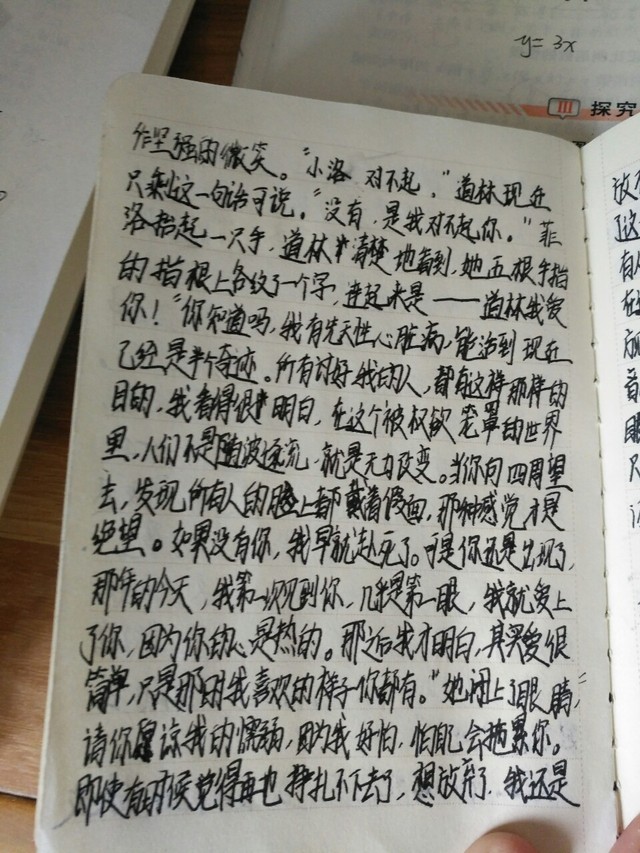 y=3x
III 探究
作坚强的微笑。“小洛 对不起，”道林现在
只剩这一句话可说。“没有，是我对不起你。”菲
洛抬起一只手，道林清楚地看到，她五根手指
的指根上各纹了一个字，连起来是——道林我爱
你！“你知道吗，我有先天性心脏病，能活到现在
已经是半个奇迹。所有讨好我的人，都有这样那样的
目的，我看得很明白，在这个被权欲笼罩的世界
里，人们不是随波逐流，就是无力改变。当你向四周望
去，发现所有人的脸上都戴着假面，那种感觉才是
绝望。如果没有你，我早就赴死了。可是你还是出现了，
那年的今天，我第一次见到你，几乎是第一眼，我就爱上
了你，因为你的心是热的。那之后我才明白，其实爱很
简单，只是那时我喜欢的样子你都有。”她闭上了眼睛，“
请你原谅我的懦弱，因为我好怕，怕自己会拖累你。
即使有时候觉得再也挣扎不下去了，想放弃了，我还是
放
了这
有
在